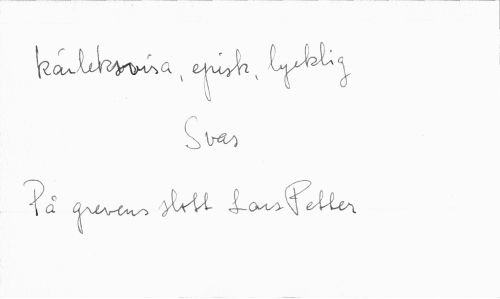 kärleksvisa, episk, lycklig
Svar
På grevens slott Lars Petter